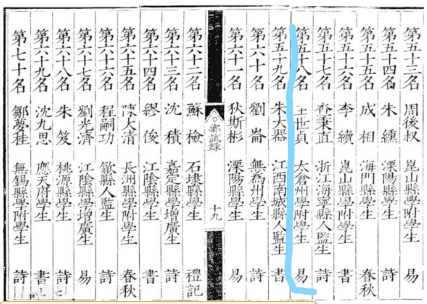 第五十三名 周後叔 崑山縣學附學生 詩
第五十四名 朱纁 溧陽縣學附學生 書
第五十五名 成相 海門縣學生 春秋
第五十六名 李續 崑山縣學附學生 詩
第五十七名 查秉直 浙江海寧縣人監生
第五十八名 王世貞 太倉州學附學生 易
第五十九名 朱大器 江西南城縣人監生 書
第六十名 劉崙 無為州學生 詩
第六十一名 狄斯彬 溧陽縣學附學生 易
試錄 十九
第六十二名 蘇檢 石埭縣學附學生 禮記
第六十三名 沈積 嘉定縣學增廣生 詩
第六十四名 繆俊 江陰縣學生 書
第六十五名 陳大清 長洲縣學附學生 春秋
第六十六名 程嗣功 歙縣人監生 詩
第六十七名 劉光濟 江陰縣學增廣生 易
第六十八名 朱笈 桃源縣學生 詩
第六十九名 沈九思 應天府學生 書
第七十名 鄒夢桂 無錫縣學附學生 詩